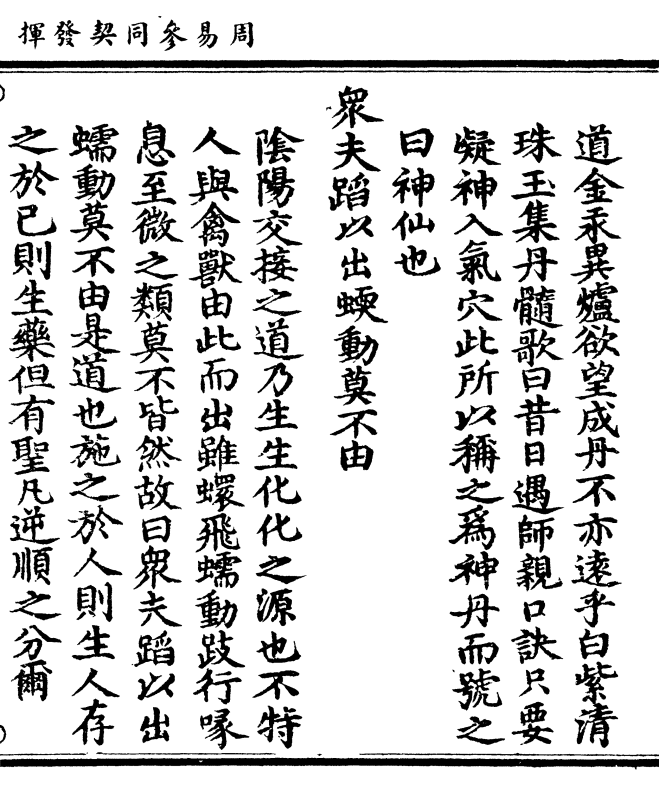 周易參同契發揮
道金汞異爐欲望成丹不亦遠乎白紫清
珠玉集丹髓歌曰昔日遇師親口訣只要
凝神入氣穴此所以稱之爲神丹而號之
曰神仙也
衆夫蹈以出蝡動莫不由
陰陽交接之道乃生生化化之源也不特
人與禽獸由此而出雖蠉飛蠕動跂行喙
息至微之類莫不皆然故曰衆夫蹈以出
蠕動莫不由是道也施之於人則生人存
之於已則生藥但有聖凡逆順之分爾